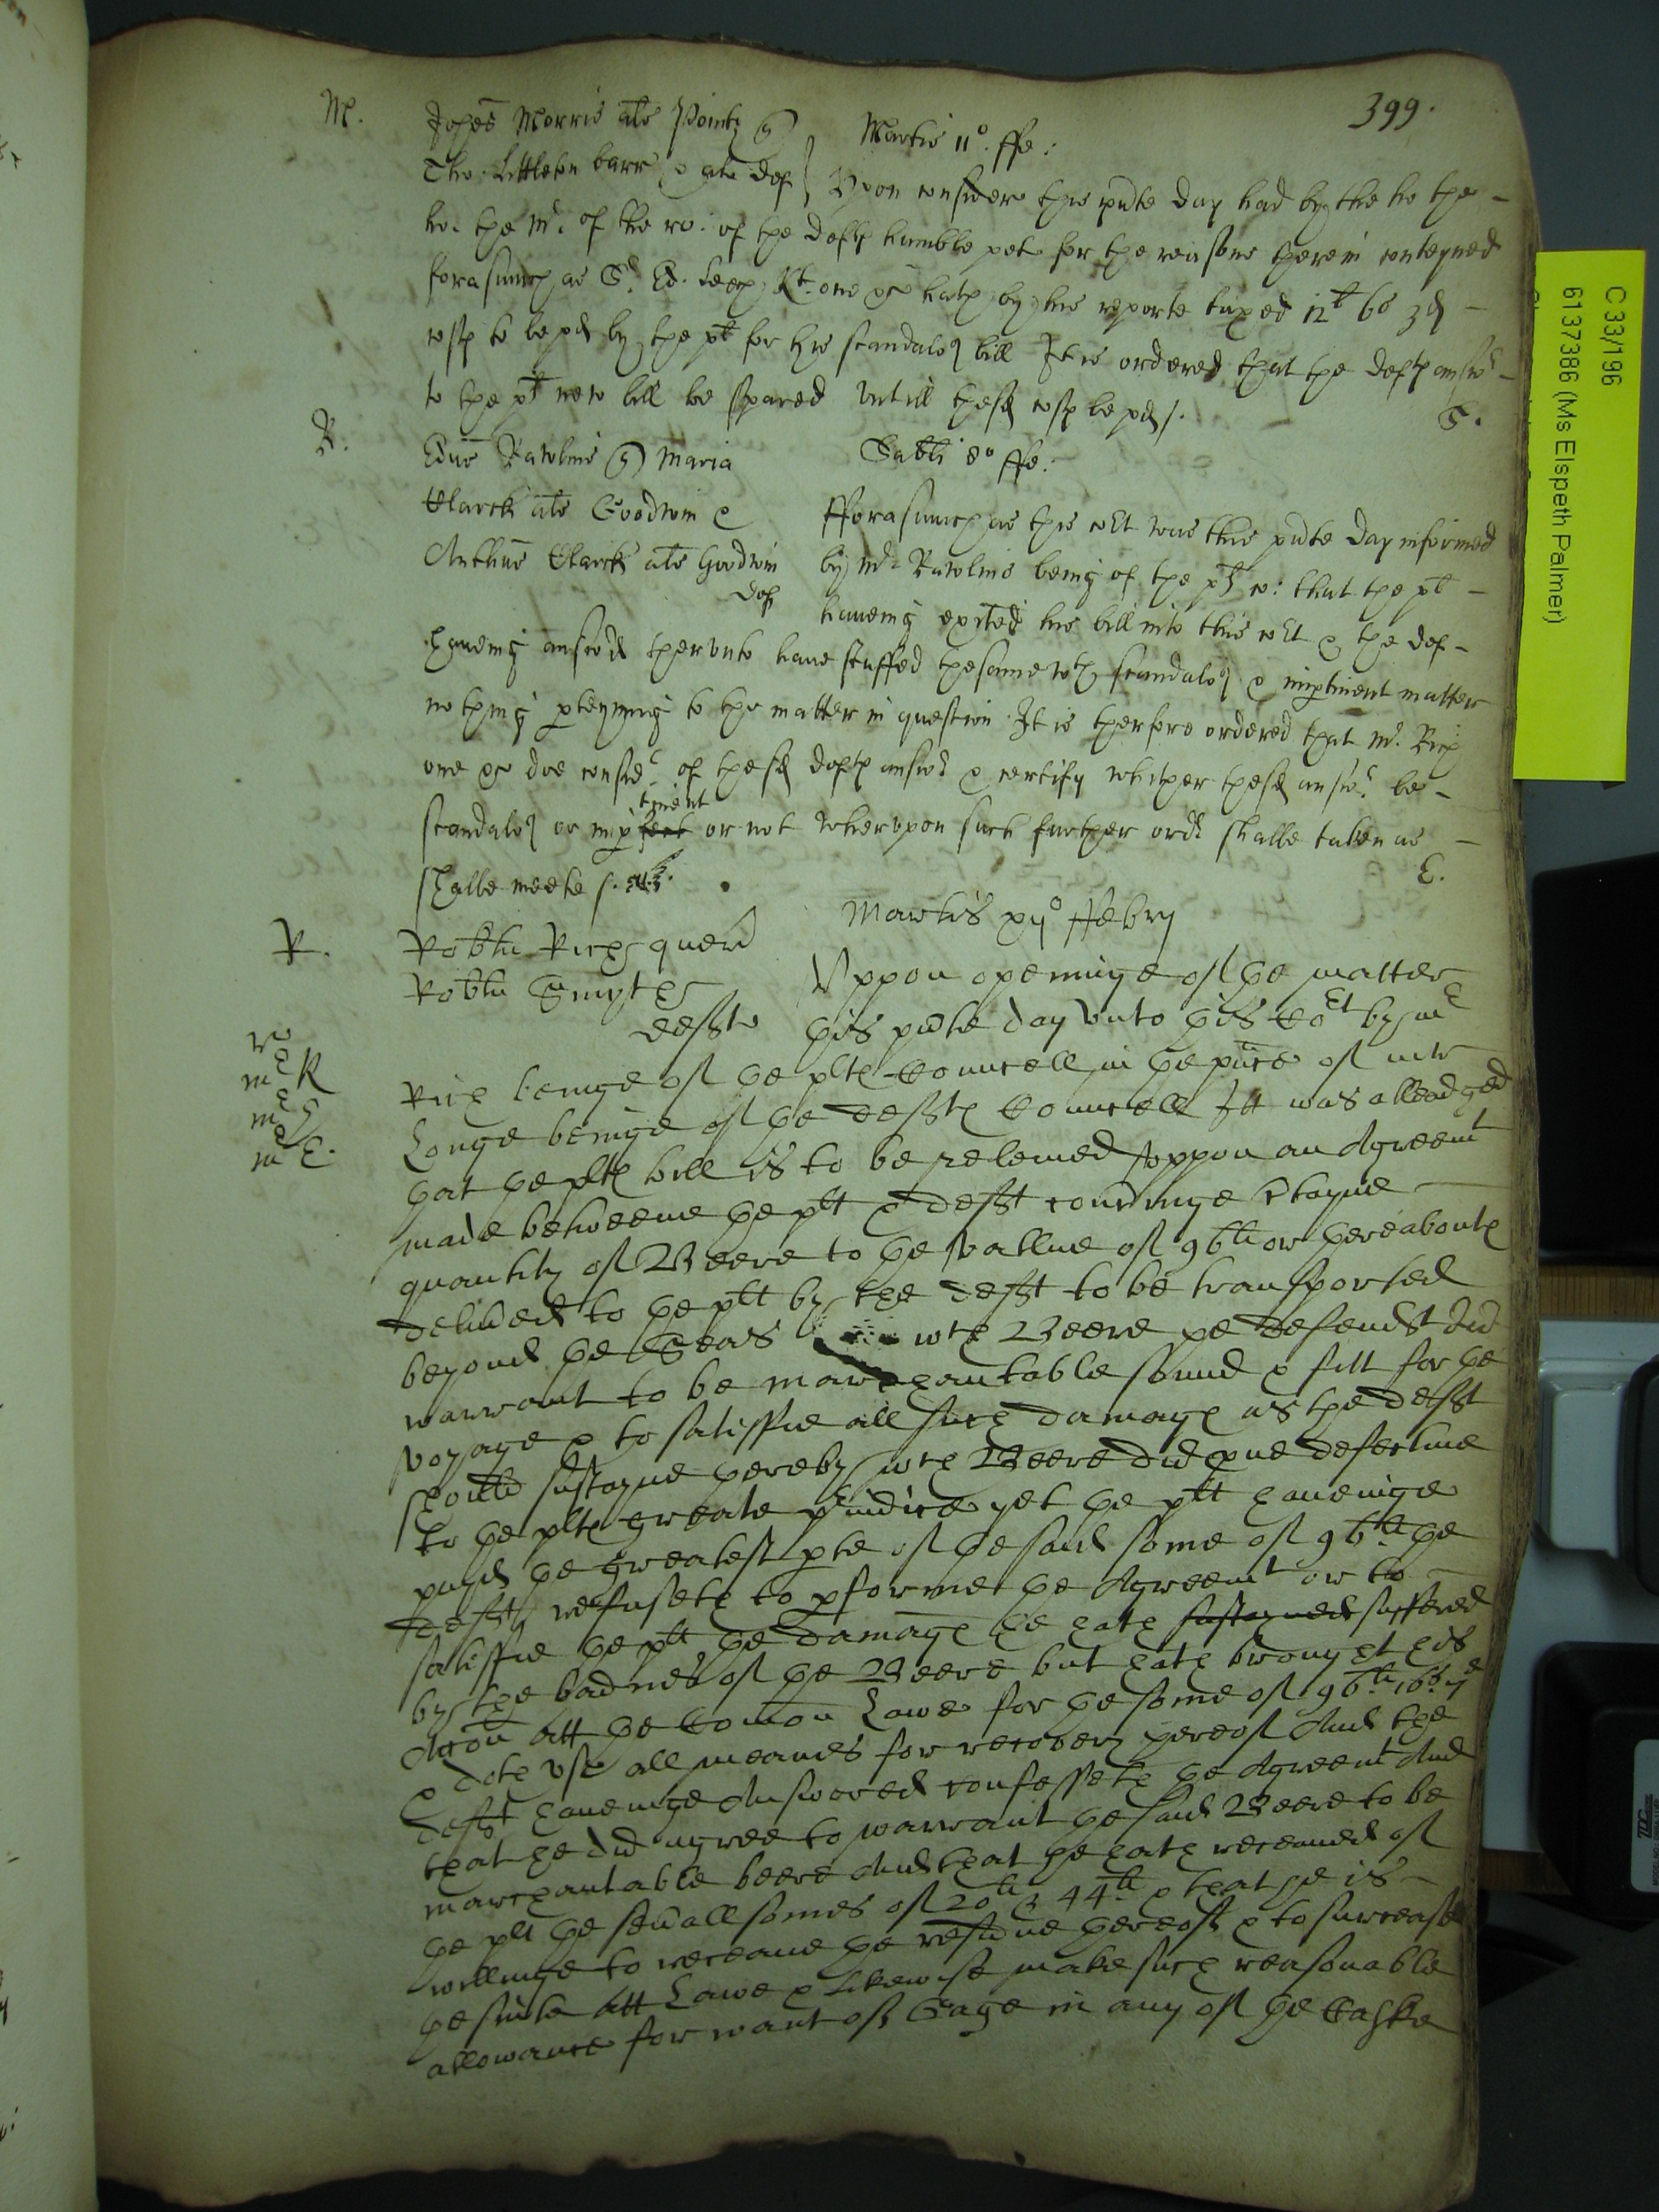 399.
M. Johes Morris als Pointz q Martis 11o. ffe:
Tho: Littleton barr & als def Upon consideron this pnte day had by the ho the
ho: the Mr. of the ro: of the defts humble peto for the reasons therein conteyned
forasmuch as Sr. Ed. Leech Kt. one &c hath by his reporte taxed 12l 6s 3d
costs to be pd by the plt for his scandalos bill It is ordered that the defts answr
to the plts new bill be spared untill thesd costs be pd /. S.
R. Edus Rawlins q Maria Sabti 8o ffe:
Clarck als Goodwin & fforasmuch as this Cort was this pnte day informed
Arthus Clarck als Goodwin by Mr. Rawlins being of the plts co: that the plt
def haveing exited his bill into this Cort & the def
haveing answrd therunto have stuffed the same wth scandalos & imptinent matter
nothing pteyning to the matter in question It is therfore ordered that Mr. Rich
one &c doe consider of thesd defts answr & certify whither thesd answr be
scandalos or imptinent or not wherupon such further ordr shalbe taken as
shalbe meete /. E.
Martis xjo ffebry
R. Robtus Rich quer
Robtus Smyth Uppon openinge of the matter
defts this pnte day unto this Cort by Mr
Rich beinge of the plts Councell in the pnce of Mr
Mr R
Longe beinge of the defts Councell Itt was alleadged
Mr E.
that the plts bill is to be releived uppon an Agreemt
made betweene the plt & deft concninge Ctayne
quantity of Beere to the vallue of 96li or thereabouts
delived to the plt by the deft to be transported
beyond the Seas wch Beere the defendt did
warrant to be marchantable sound & fitt for the
voyage & to satisfie all such damage as the deft
should sustayne thereby wch Beere did pve defective
to the plts greate piudice yet the plt haveinge
payd the greatest pte of the said some of 96li the
deft refuseth to pforme the Agreemt or to
satisfie the plt the damage he hath sustayned suffered
by the badnes of the Beere but hath brought his
Accon att the Comon Lawe for the some of 96li 16s
& doth use all meanes for recovery thereof And the
deft haveinge Answered confesseth the Agreemt And
that he did agree to warrant the said Beere to be
marchantable beere And that he hath receaved of
the plt the sevall somes of 20li & 44li & that he is
willinge to receave the residue thereof & to surcease
the suite att Lawe & likewise make such reasonable
allowance for want of Gage in any of the Caske
C 33/196
6137386 (Ms Elspeth Palmer)